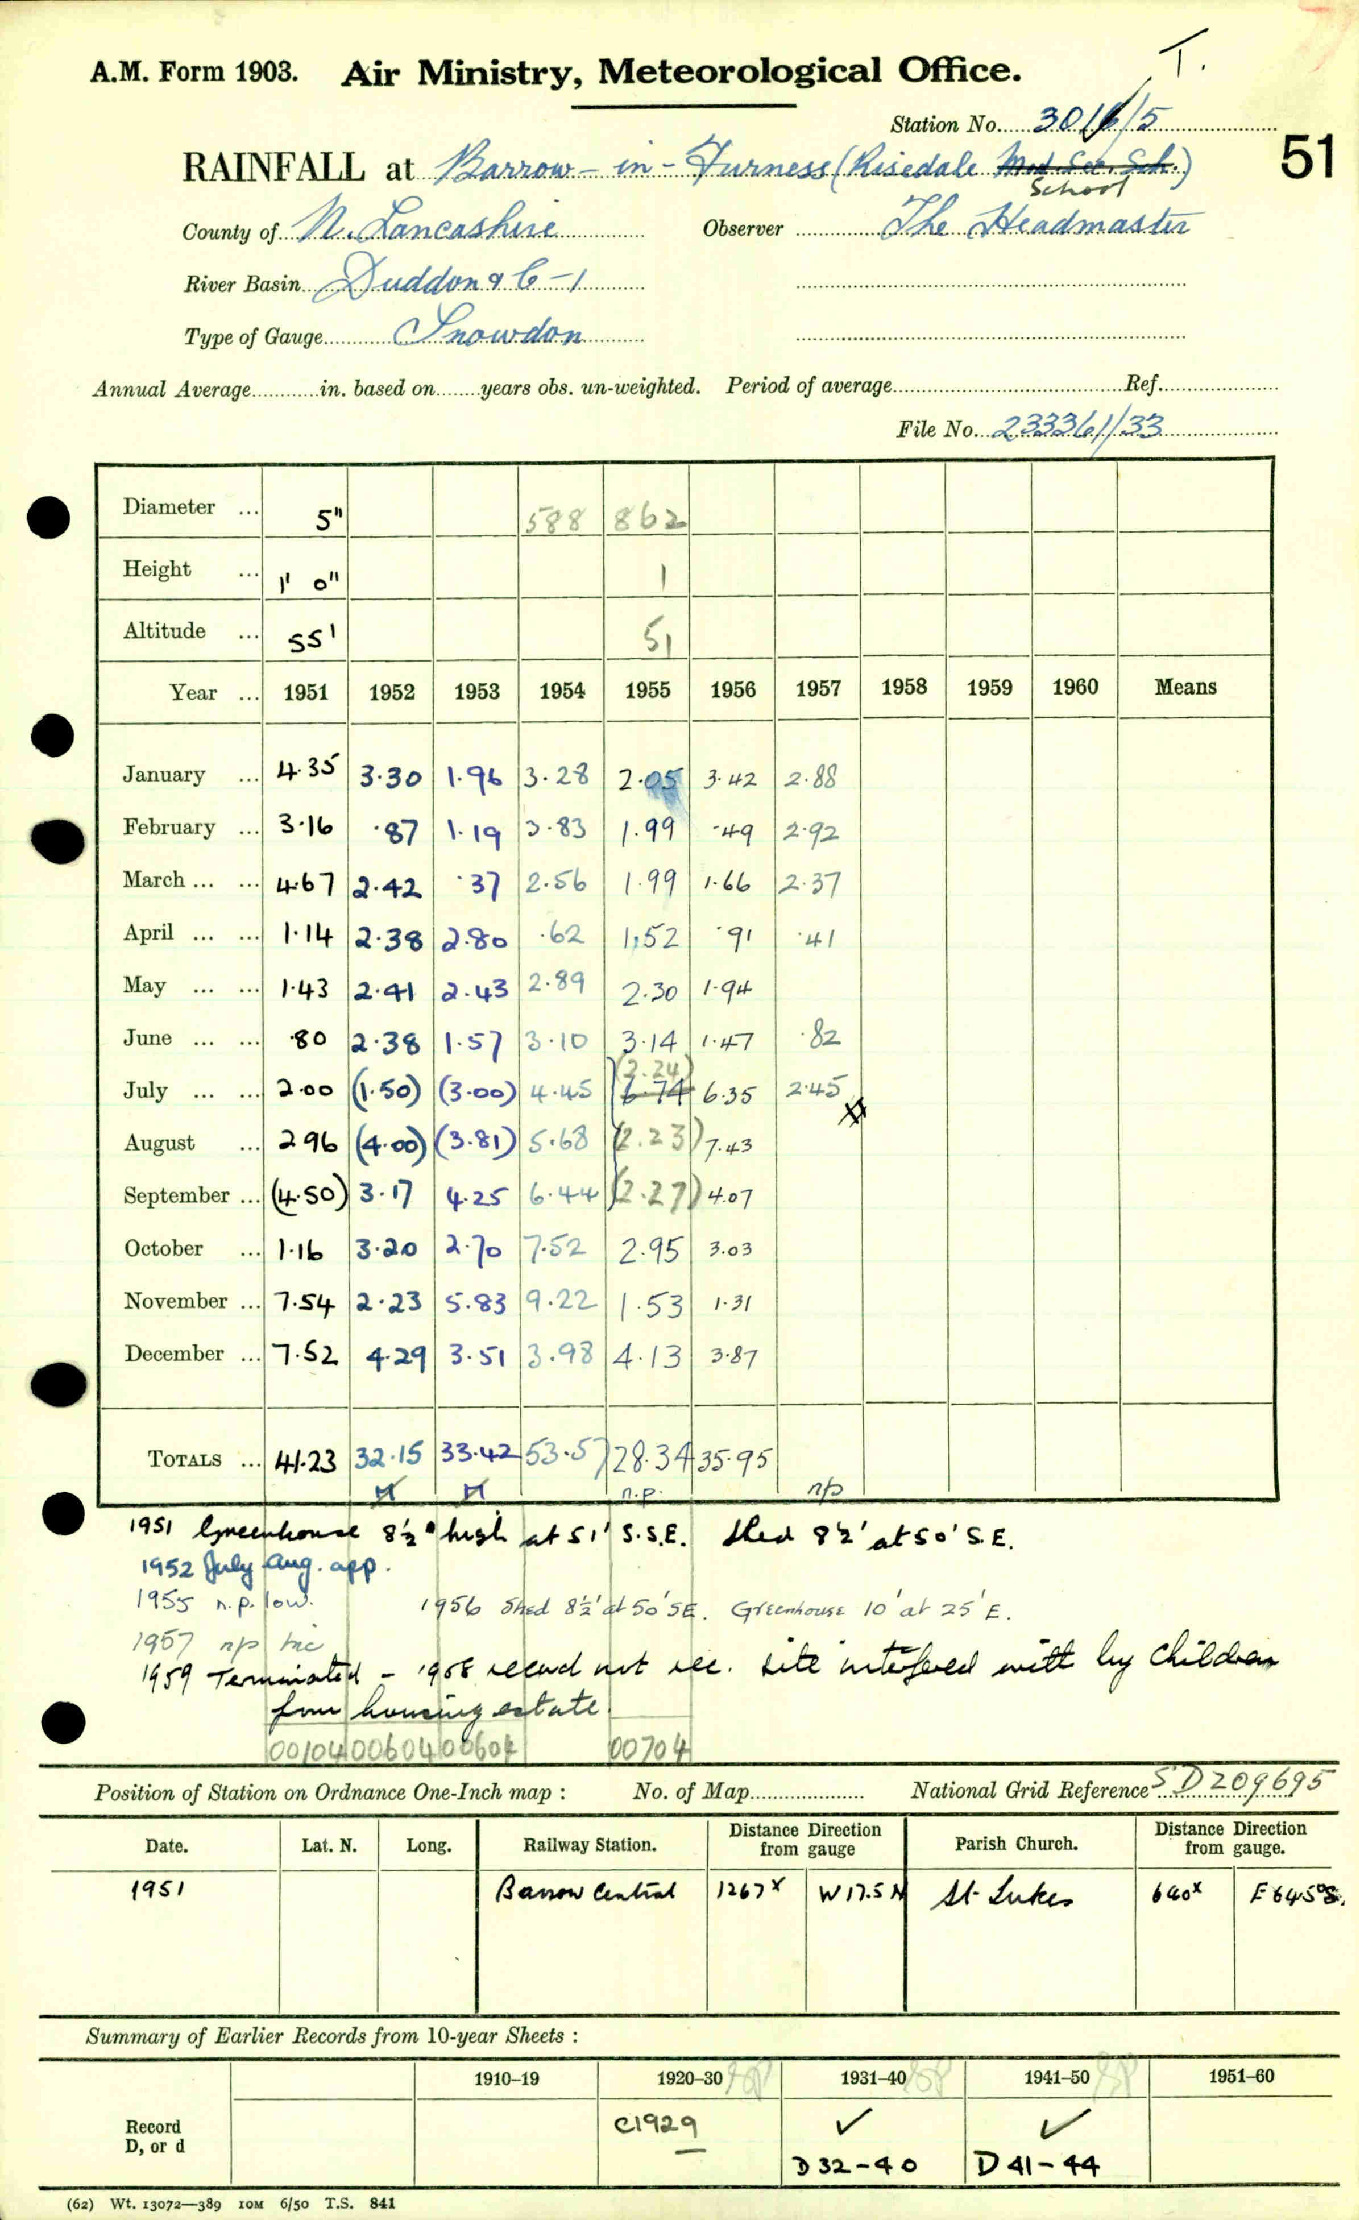 T.
A.M. Form 1903. Air Ministry, Meteorological Office.
Station No. 3016/5
51
RAINFALL at Barrow-in-Furness (Risedale Mod. Sec. Sch.)
School
County of N. Lancashire Observer The Headmaster
River Basin Duddon & C-1
Type of Gauge Snowdon
Annual Average in. based on years obs. un-weighted. Period of average Ref.
File No. 233361/33
Diameter ... 5" 588 862
Height ... 1' 0" 1
Altitude ... 55' 51
Year ... 1951 1952 1953 1954 1955 1956 1957 1958 1959 1960 Means
January ... 4.35 3.30 1.96 3.28 2.05 3.42 2.88
February ... 3.16 .87 1.19 3.83 1.99 .49 2.92
March ... ... 4.67 2.42 .37 2.56 1.99 1.66 2.37
April ... ... 1.14 2.38 2.80 .62 1.52 .91 .41
May ... ... 1.43 2.41 2.43 2.89 2.30 1.94
June ... ... .80 2.38 1.57 3.10 3.14 1.47 .82
(2.24)
July ... ... 2.00 (1.50) (3.00) 4.45 6.74 6.35 2.45
August ... 2.96 (4.00) (3.81) 5.68 (2.23) 7.43
September ... (4.50) 3.17 4.25 6.44 (2.27) 4.07
October ... 1.16 3.20 2.70 7.52 2.95 3.03
November ... 7.54 2.23 5.83 9.22 1.53 1.31
December ... 7.52 4.29 3.51 3.98 4.13 3.87
TOTALS ... 41.23 32.15 33.42 53.57 28.34 35.95
n.p. n/p
1951 Greenhouse 8½' high at 51' S.S.E. Shed 8½' at 50' S.E.
1952 July Aug. app.
1955 n.p. low. 1956 Shed 8½' at 50' SE. Greenhouse 10' at 25' E.
1957 n/p inc
1959 Terminated - 1958 record not rec. Site interfered with by children
from housing estate.
00104 00604 00604 00704
Position of Station on Ordnance One-Inch map : No. of Map National Grid Reference SD209695
Date. Lat. N. Long. Railway Station. Distance Direction from gauge Parish Church. Distance Direction from gauge.
1951 Barrow Central 1267x W17.5N St. Lukes 640x E64.5°S.
Summary of Earlier Records from 10-year Sheets :
1910–19 1920–30 1931–40 1941–50 1951–60
Record
D, or d
C1929 ✓ ✓
D 32-40 D 41-44
(62) Wt. 13072—389 10M 6/50 T.S. 841